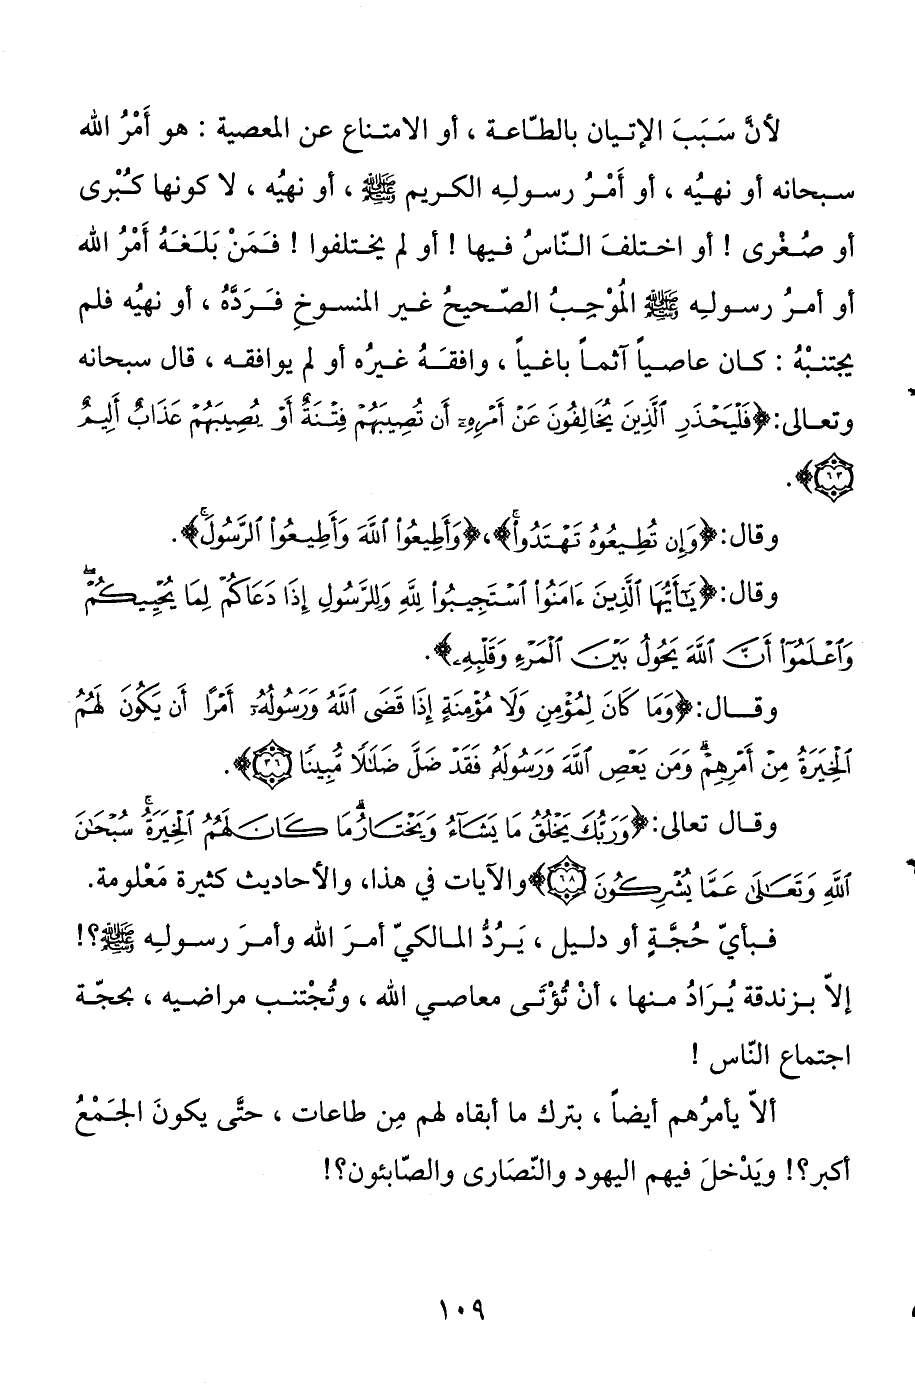 لأنَّ سَبَبَ الإتيان بالطّاعة ، أو الامتناع عن المعصية : هو أَمْرُ الله
سبحانه أو نهيُه ، أو أَمْرُ رسوله الكريم ﷺ ، أو نهيُه ، لا كونها كُبْرى
أو صُغْرى ! أو اختلفَ النّاسُ فيها ! أو لم يختلفوا ! فَمَنْ بَلَغَهُ أمْرُ الله
أو أمرُ رسوله ﷺ المُوْجِبُ الصّحيحُ غير المنسوخِ فَرَدَّهُ ، أو نهيُه فلم
يجتنبْهُ : كان عاصياً آثماً باغياً ، وافقَهُ غيرُه أو لم يوافقه ، قال سبحانه
وتعالى: ﴿فَلْيَحْذَرِ ٱلَّذِينَ يُخَالِفُونَ عَنْ أَمْرِهِۦٓ أَن تُصِيبَهُمْ فِتْنَةٌ أَوْ يُصِيبَهُمْ عَذَابٌ أَلِيمٌ
٦٣﴾.
وقال: ﴿وَإِن تُطِيعُوهُ تَهْتَدُوا۟ۚ﴾، ﴿وَأَطِيعُوا۟ ٱللَّهَ وَأَطِيعُوا۟ ٱلرَّسُولَۚ﴾.
وقال: ﴿يَـٰٓأَيُّهَا ٱلَّذِينَ ءَامَنُوا۟ ٱسْتَجِيبُوا۟ لِلَّهِ وَلِلرَّسُولِ إِذَا دَعَاكُمْ لِمَا يُحْيِيكُمْۖ
وَٱعْلَمُوٓا۟ أَنَّ ٱللَّهَ يَحُولُ بَيْنَ ٱلْمَرْءِ وَقَلْبِهِۦ﴾.
وقال: ﴿وَمَا كَانَ لِمُؤْمِنٍ وَلَا مُؤْمِنَةٍ إِذَا قَضَى ٱللَّهُ وَرَسُولُهُۥٓ أَمْرًا أَن يَكُونَ لَهُمُ
ٱلْخِيَرَةُ مِنْ أَمْرِهِمْۗ وَمَن يَعْصِ ٱللَّهَ وَرَسُولَهُۥ فَقَدْ ضَلَّ ضَلَـٰلًا مُّبِينًا ٣٦﴾.
وقال تعالى: ﴿وَرَبُّكَ يَخْلُقُ مَا يَشَآءُ وَيَخْتَارُۗ مَا كَانَ لَهُمُ ٱلْخِيَرَةُۚ سُبْحَـٰنَ
ٱللَّهِ وَتَعَـٰلَىٰ عَمَّا يُشْرِكُونَ ٦٨﴾ والآيات في هذا، والأحاديث كثيرة مَعْلومة.
فبأيّ حُجَّةٍ أو دليل ، يَرُدُّ المالكيّ أمرَ الله وأمرَ رسوله ﷺ؟!
إلاّ بزندقة يُرَادُ منها ، أنْ تُؤْتَى معاصي الله ، وتُجْتنب مراضيه ، بحجّة
اجتماع النّاس !
ألاّ يأمرُهم أيضاً ، بترك ما أبقاه لهم مِن طاعات ، حتَّى يكونَ الجَمْعُ
أكبر؟! ويَدْخلَ فيهم اليهود والنّصَارى والصّابئون؟!
١٠٩